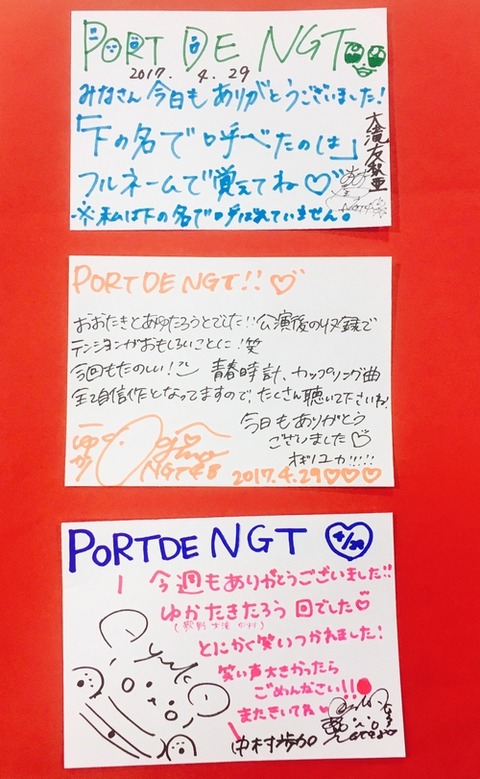 PORT DE NGT
2017. 4. 29
みなさん今日もありがとうございました！
「下の名で呼べたのは」
フルネームで覚えてね♡
※私は下の名で呼ばれていません。
大滝友梨亜
NGT48
PORT DE NGT!!♡
おおたきとあゆたろうとでした!!公演後の収録で
テンションがおもしろいことに！笑
今回もたのしい！
青春時計、カップリング曲
全て自信作となってますので、たくさん聴いて下さいね！
今日もありがとう
ございました♡
オギノユカ!!!!!
NGT48
2017.4.29♡♡♡
PORT DE NGT
4/29
今週もありがとうございました!!
ゆかたきたろう回でした♡
(荻野 大滝 中村)
とにかく笑いつかれました！
笑い声大きかったら
ごめんなさい!!
またきいてね♥
中村歩加